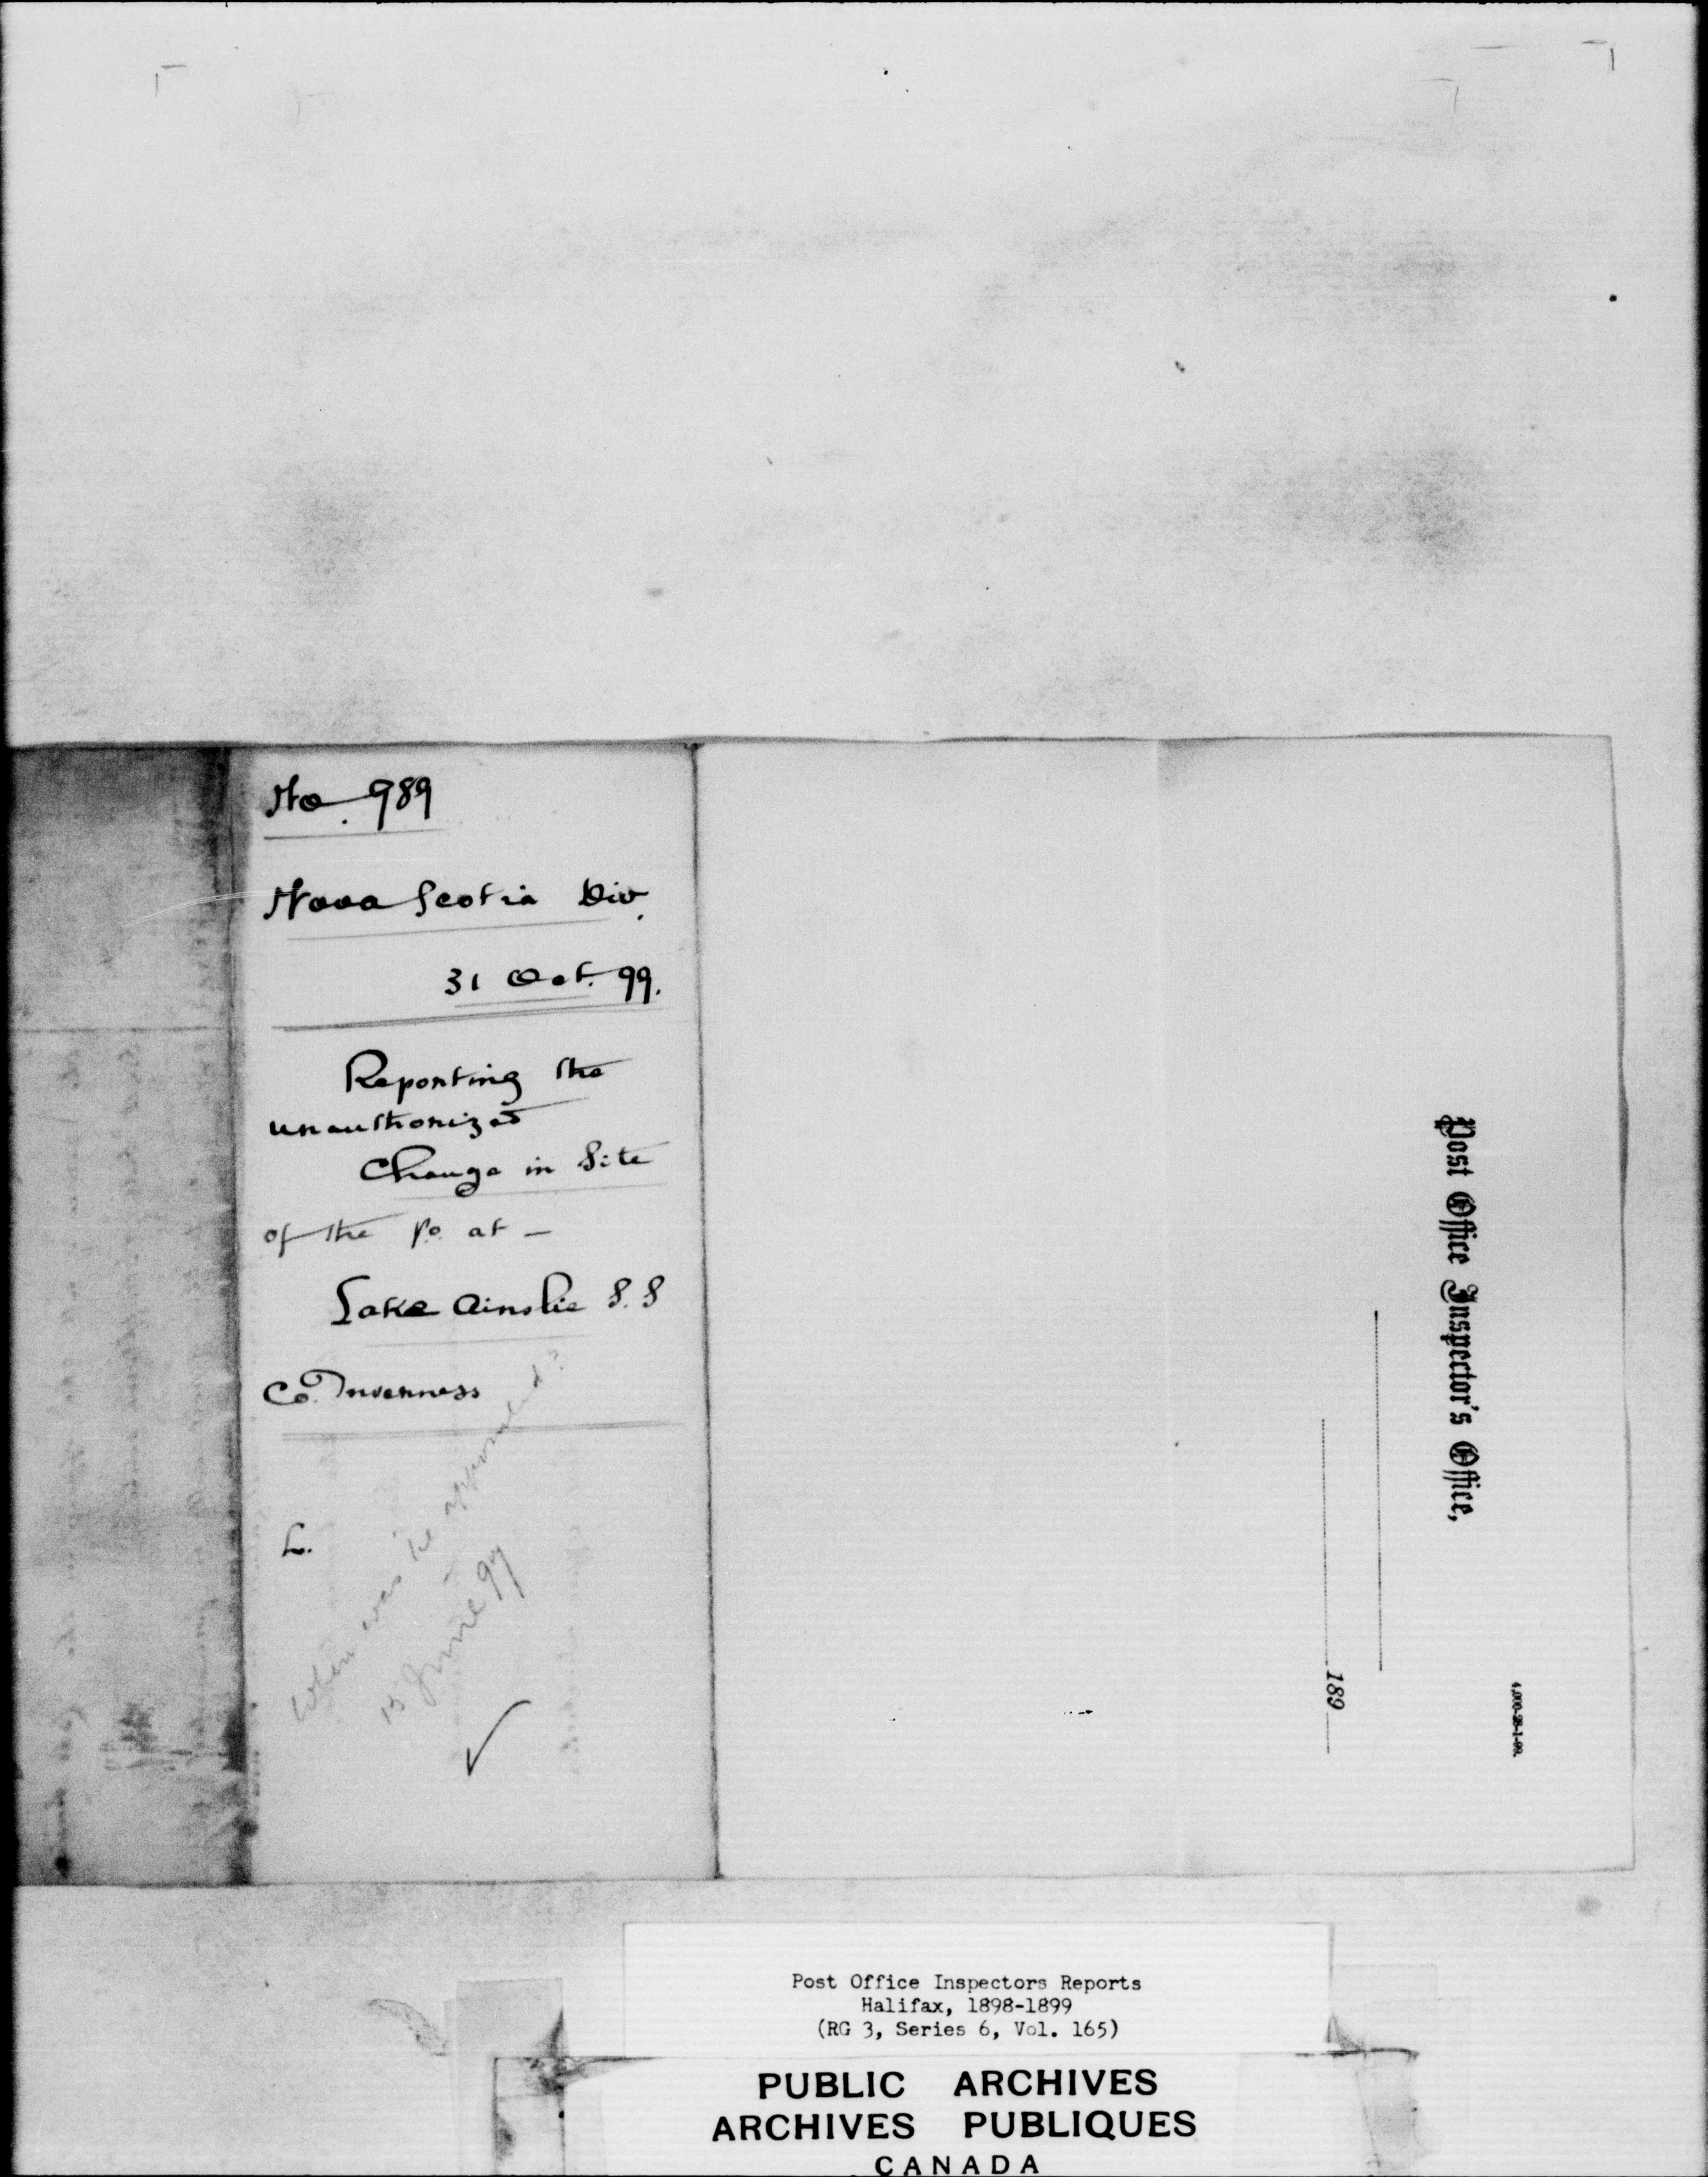 No. 989
Nova Scotia Div.
31 Oct. 99.
Reporting the
unauthorized
Change in Site
of the P.O. at —
Lake Ainslie S. S
Co. Inverness
L.
When was he appointed?
15 June 97
Post Office Inspector's Office,
189
4,000-28-1-99.
Post Office Inspectors Reports
Halifax, 1898-1899
(RG 3, Series 6, Vol. 165)
PUBLIC ARCHIVES
ARCHIVES PUBLIQUES
CANADA